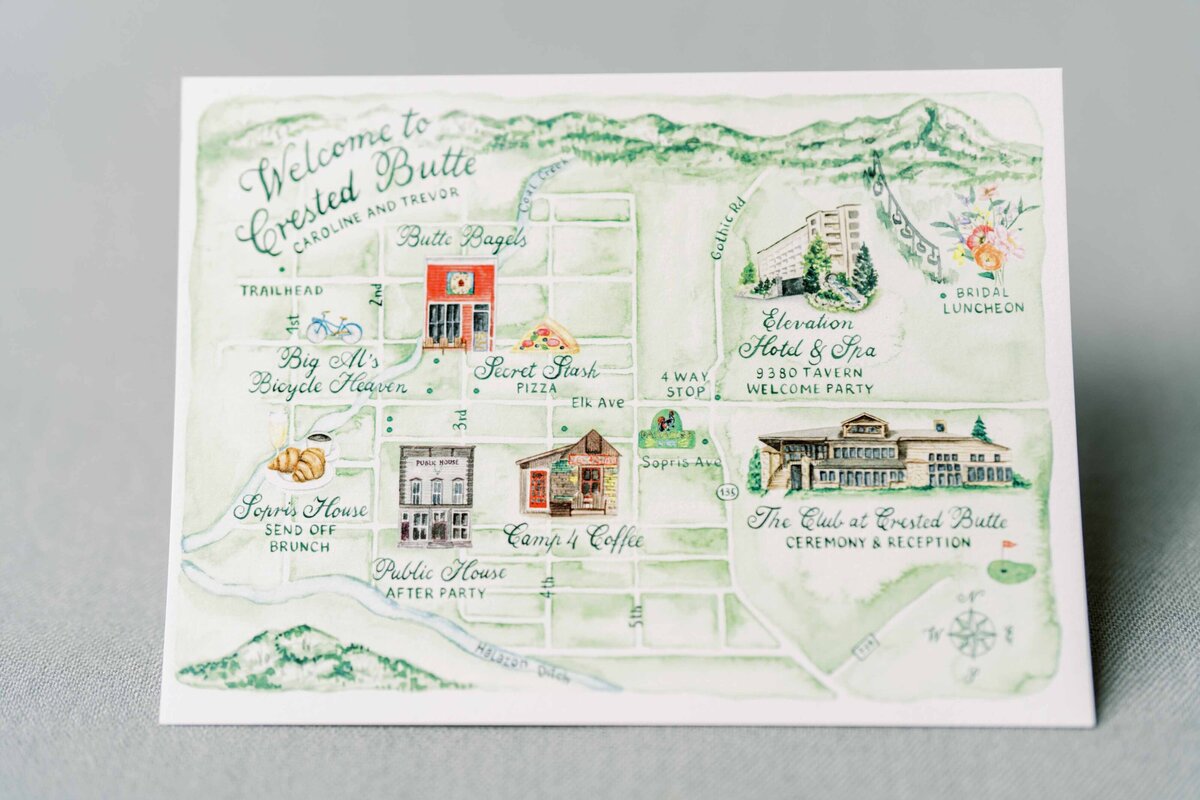 Welcome to
Crested Butte
CAROLINE AND TREVOR
Coal Creek
Butte Bagels
Gothic Rd
TRAILHEAD
2nd
1st
BRIDAL
LUNCHEON
Elevation
Hotel & Spa
9380 TAVERN
WELCOME PARTY
Big Al's
Bicycle Heaven
Secret Stash
PIZZA
4 WAY
STOP
Elk Ave
3rd
PUBLIC HOUSE
Sopris Ave
135
Sopris House
SEND OFF
BRUNCH
Camp 4 Coffee
The Club at Crested Butte
CEREMONY & RECEPTION
Public House
AFTER PARTY
4th
5th
Halazon Ditch
N
W
E
S